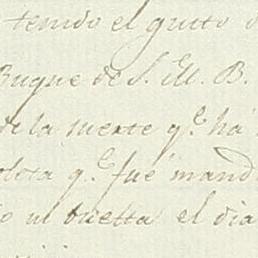 tenido el gusto d
Buque de S. M. B.
de la suerte q.e ha
olota q.e fue mand
o su buelta el dia